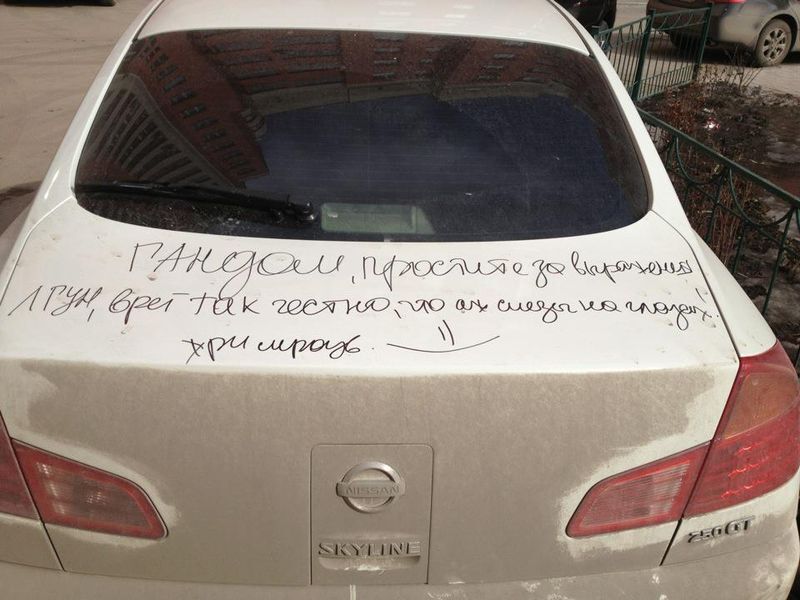 ГАНДОМ, простите за выражения
ЛГУН, врет так честно, что аж слезы на глазах!
NISSAN
SKYLINE
250GT